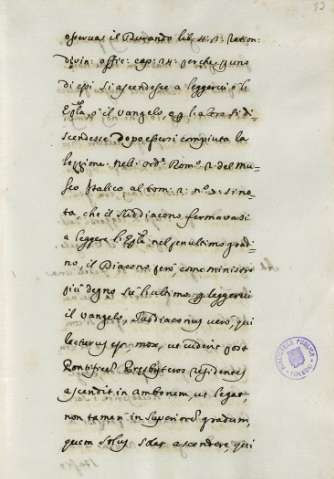 osservas il Durando lib. 4. s. ration:
divin: offic: cap: 24: perche s'uno
di essi si ascendesse a leggervi
o il vangelo e p l'altra si di
scendesse dopo essersi compiuta la
lezzione. nell' ord: Rom: 2 del Mu-
seo Italico al tom: 2: n: si no-
ta, che il Suddiacono fermavasi
a leggere nel penultimo gradi-
no, il Diacono però come ministro
più degno su l'ultimo p leggervi
il vangelo, Subdiaconus vero, qui
lecturus est mox, ut viderit post
Pontificem Presbyteros residentes
ascendit in ambonem, ut legat,
non tamen in superiorem gradum,
quem solus solet ascendere qui